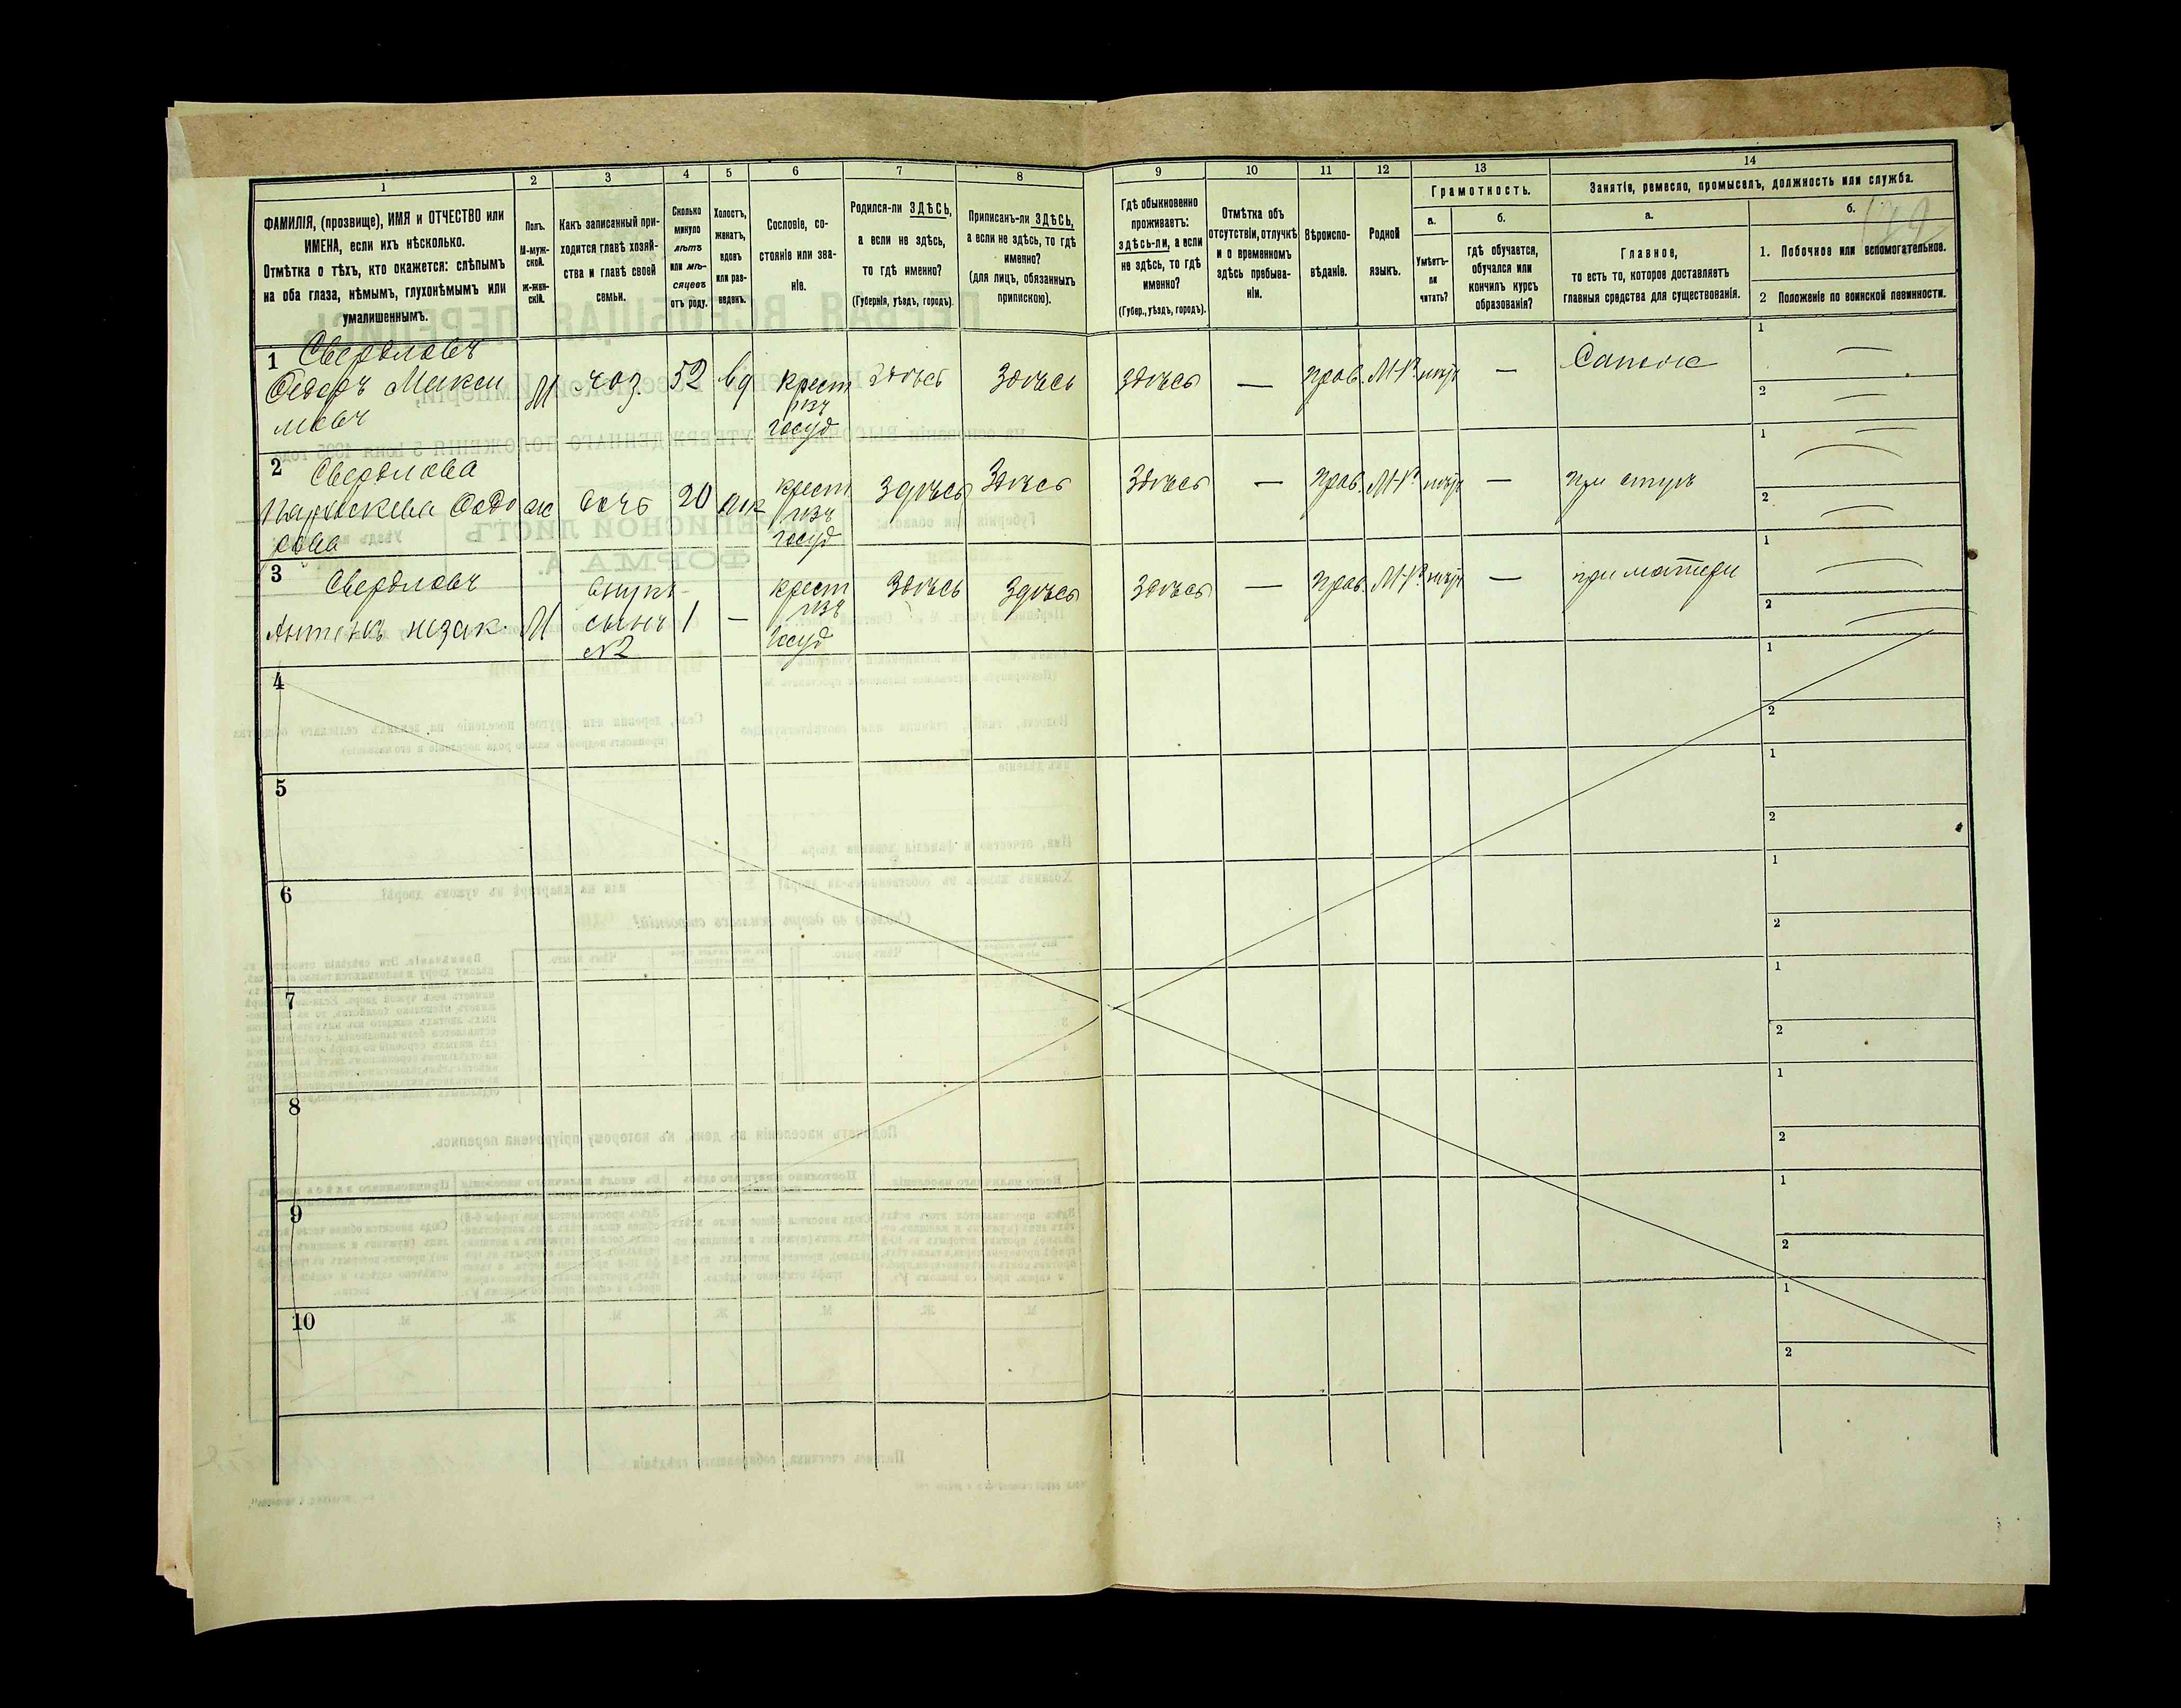 1 2 3 4 5 6 7 8 9 10 11 12 13 14
ФАМИЛІЯ, (прозвище), ИМЯ и ОТЧЕСТВО или
ИМЕНА, если ихъ нѣсколько.
Отмѣтка о тѣхъ, кто окажется: слѣпымъ
на оба глаза, нѣмымъ, глухонѣмымъ или
умалишеннымъ.
Полъ.
М-муж-
ской.
Ж-жен-
скій.
Какъ записанный при-
ходится главѣ хозяй-
ства и главѣ своей
семьи.
Сколько
минуло
лѣтъ
или мѣ-
сяцевъ
отъ роду.
Холостъ,
женатъ,
вдовъ
или раз-
веденъ.
Сословіе, со-
стояніе или зва-
ніе.
Родился-ли ЗДѢСЬ,
а если не здѣсь,
то гдѣ именно?
(Губернія, уѣздъ, городъ).
Приписанъ-ли ЗДѢСЬ,
а если не здѣсь, то гдѣ
именно?
(для лицъ, обязанныхъ
припискою).
Гдѣ обыкновенно
проживаетъ:
здѣсь-ли, а если
не здѣсь, то гдѣ
именно?
(Губер., уѣздъ, городъ).
Отмѣтка объ
отсутствіи, отлучкѣ
и о временномъ
здѣсь пребыва-
ніи.
Вѣроиспо-
вѣданіе.
Родной
языкъ.
Грамотность.
а.
Умѣетъ-
ли
читать?
б.
гдѣ обучается,
обучался или
кончилъ курсъ
образованія?
Занятіе, ремесло, промыселъ, должность или служба.
а.
Главное,
то есть то, которое доставляетъ
главныя средства для существованія.
б.
1. Побочное или вспомогательное.
2 Положеніе по воинской повинности.
1 Свердловъ
Ѳедоръ Макси
мовъ
М
хоз.
52
вд
крест
изъ
госуд
Здѣсь
Здѣсь
здѣсь
—
прав.
М-Р.
—
1 —
2 —
2 Свердлова
Параскева Ѳедо
рова
ж
дочь
20
крест
изъ
госуд
Здѣсь
Здѣсь
Здѣсь
—
прав.
М-Р.
—
1 —
2 —
3 Свердловъ
незак.
М
внукъ
сынъ
№2
1
—
крест
изъ
госуд
Здѣсь
Здѣсь
Здѣсь
—
прав.
М-Р.
—
при матери
1 —
2 —
4
1
2
5
1
2
6
1
2
7
1
2
8
1
2
9
1
2
10
1
2